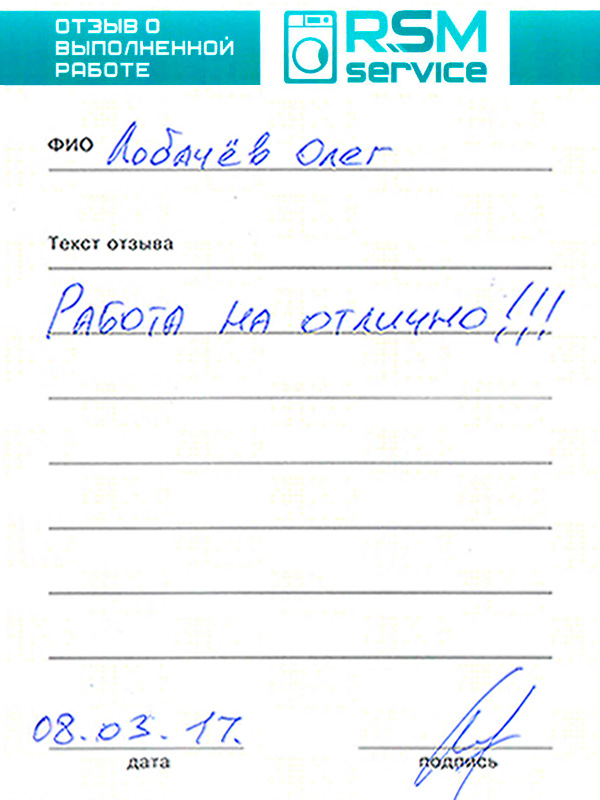 ОТЗЫВ О
ВЫПОЛНЕННОЙ
РАБОТЕ
RSM
service
ФИО Лобачёв Олег
Текст отзыва
Работа на отлично!!!
08.03.17.
дата
подпись